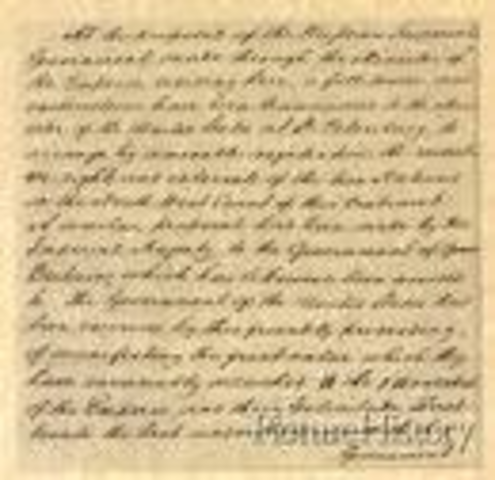 At the proposal of the Russian Imperial
Government, made through the Minister of
the Emperor, residing here, a full power and
instructions have been transmitted to the Min-
ister of the United States at St Petersburg to
arrange by amicable negotiation, the respect-
ive rights and interests of the two Nations
on the North West Coast of this Continent.
A similar proposal had been made by His
Imperial Majesty, to the Government of Great
Britain, which has likewise been acceded
to. The Government of the United States has
been desirous by this friendly proceeding,
of manifesting the great value which they
have invariably attached to the
of the Emperor, and their
the best
Government